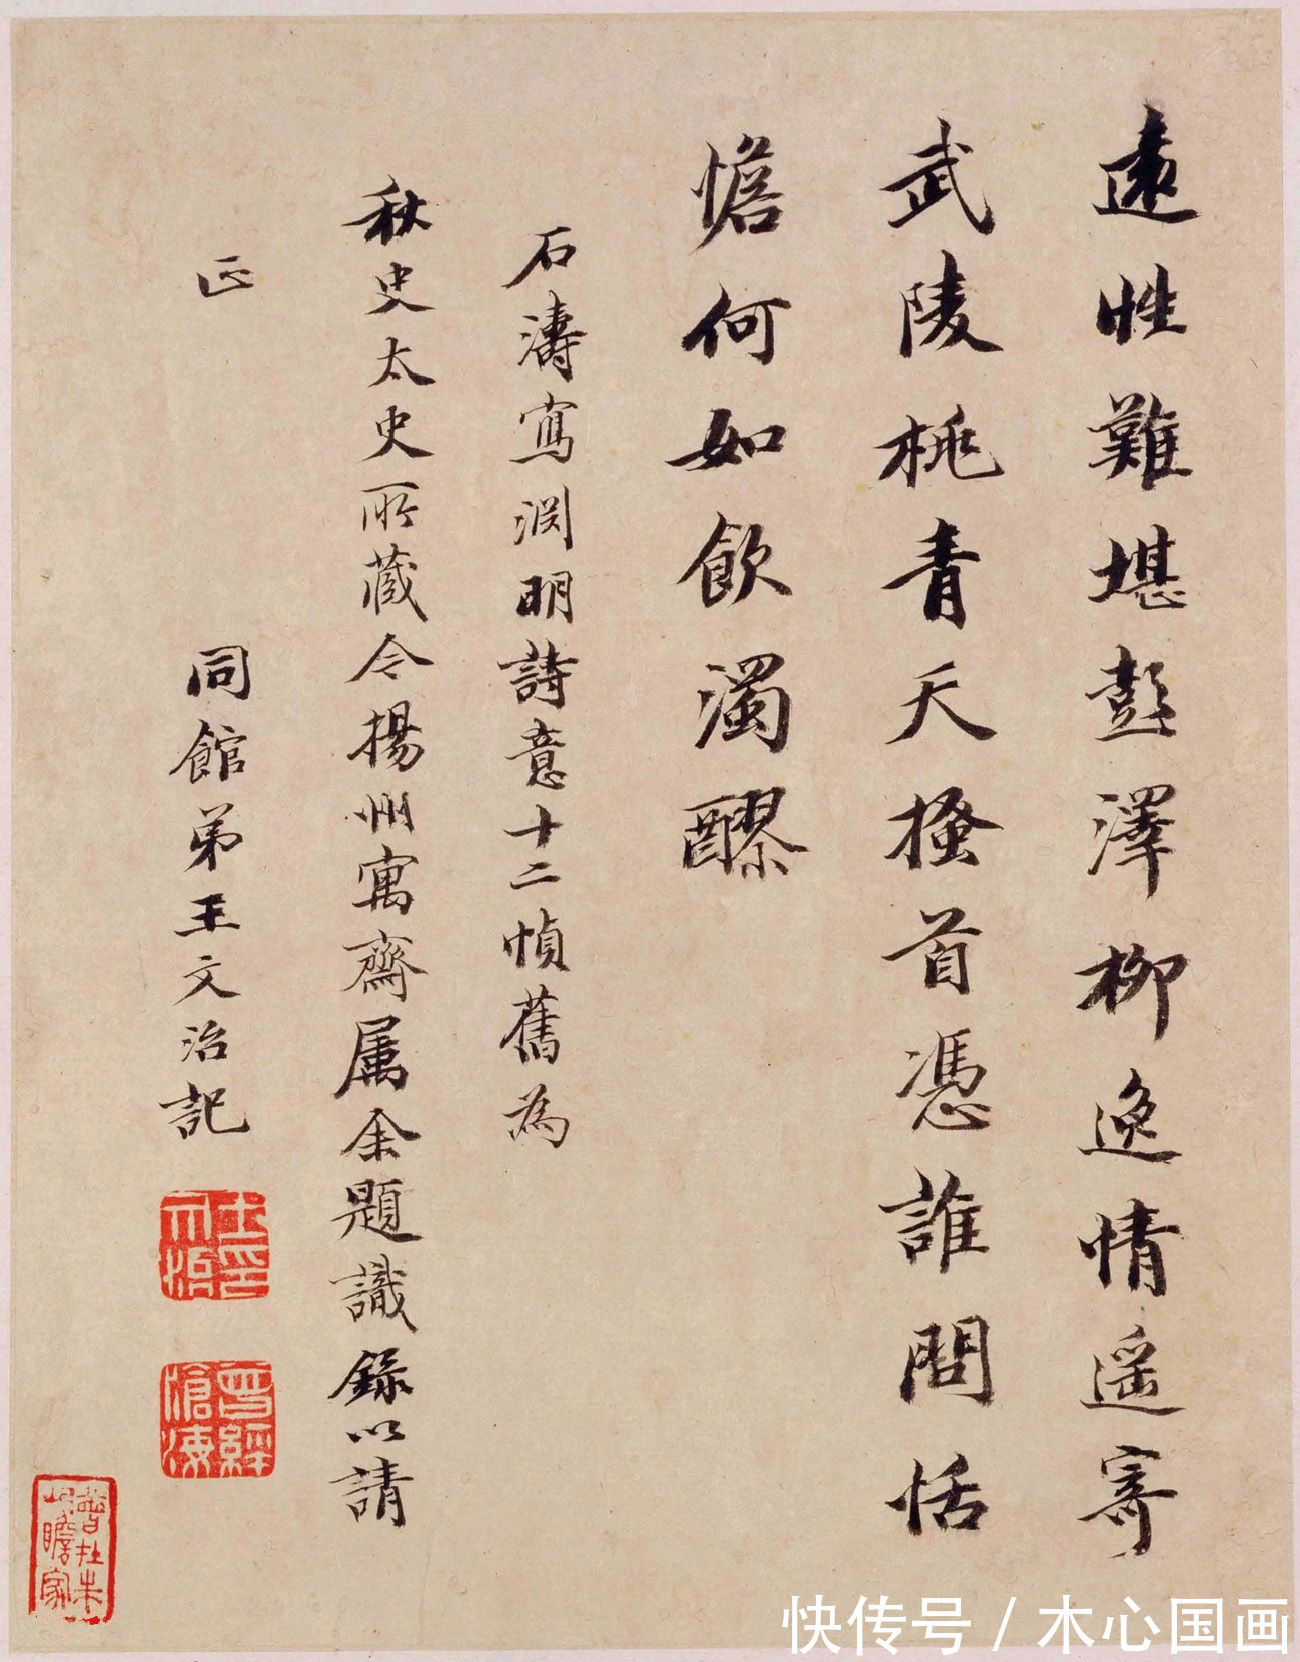 遠性難堪彭澤柳逸情遥寄
武陵桃青天搔首憑誰問恬
憺何如飲濁醪
石濤寫淵明詩意十二幀舊為
秋史太史所藏令揚州寓齋属余題識錄以請
正
同館弟王文治記
王文治印
曾經滄海
曾在朱
臥瞻家
快传号 / 木心国画